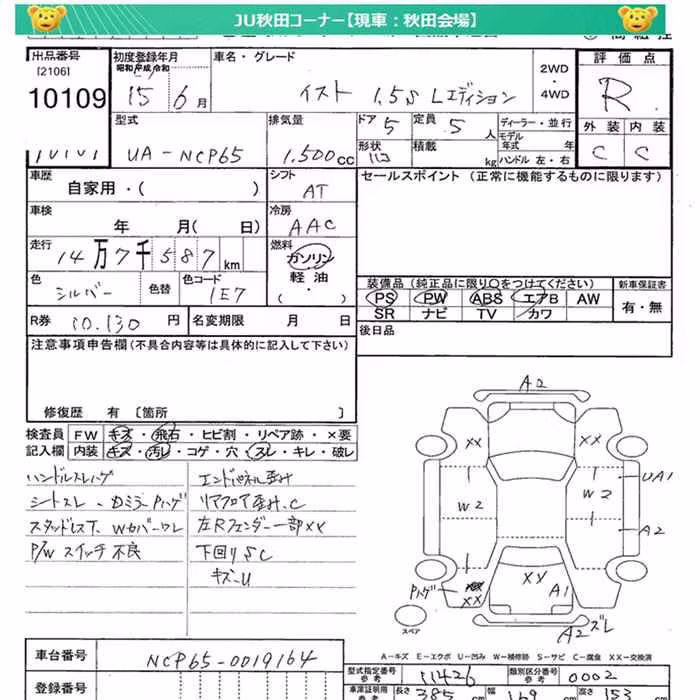 JU秋田コーナー【現車：秋田会場】
出品番号
[2106]
10109
初度登録年月
昭和 平成 令和
15 6月
車名・グレード
イスト 1.5S Lエディション
2WD
・
4WD
評価点
R
外装 内装
C C
型式
UA-NCP65
排気量
1,500cc
ドア 5
形状
定員 5人
積載 kg
ディーラー・並行
モデル年式 年
ハンドル 左・右
車歴
自家用・( )
シフト
AT
セールスポイント（正常に機能するものに限ります）
車検
年 月( 日)
冷房
AAC
走行
14万7千587km
燃料
ガソリン
軽油
( ・ )
色
シルバー
色替
色コード
1E7
装備品（純正品に限り○をつけてください）
新車保証書
PS PW ABS エアB AW
有・無
SR ナビ TV カワ
R券 10,130円
名変期限 月 日
後日品
注意事項申告欄（不具合内容等は具体的に記入して下さい）
修復歴 有〔箇所 〕
検査員 FW キズ・飛石・ヒビ割・リペア跡・×要
記入欄 内装 キズ・汚レ・コゲ・穴・スレ・キレ・破レ
ハンドルスレハゲ
シートスレ・Dミラーハゲ
スタッドレス下、Wカバーワレ
P/Wスイッチ不良
エンドパネル歪み
リアフロア歪み、C
左Rフェンダー一部XX
下回りSC
キズーU
A2
XX XX
UA1
W2 W2
A2
Pハゲ
XX
XX
A1
A2ズレ
スペア
A－キズ E－エクボ U－凹み W－補修跡 S－サビ C－腐食 XX－交換済
車台番号
NCP65-0019164
型式指定番号
参考
11426
類別区分番号
参考
0002
登録番号
車庫証明用
参考
長さ 385cm
幅
高さ 153cm